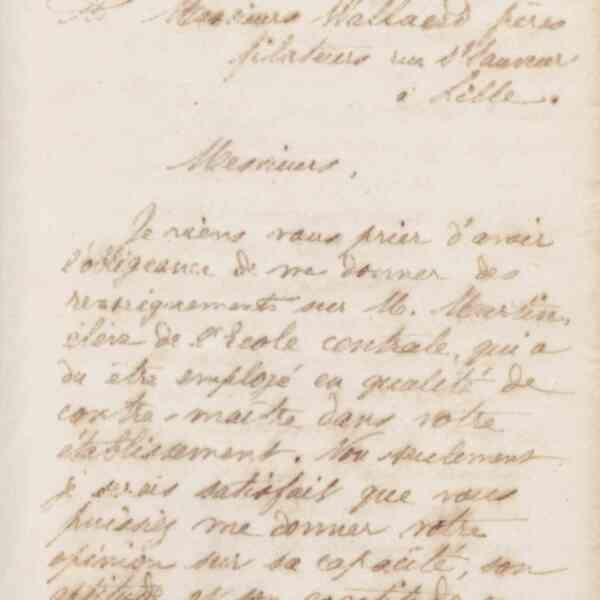 Messieurs Wallaert frères
filateurs rue St Sauveur
à Lille.
Messieurs,
Je viens vous prier d'avoir
l'obligeance de me donner des
renseignements sur M. Martin,
élève de l'Ecole centrale, qui a
du être employé en qualité de
contre-maître dans votre
établissement. Non seulement
je serais satisfait que vous
puissiez me donner votre
opinion sur sa capacité, son
aptitude et son